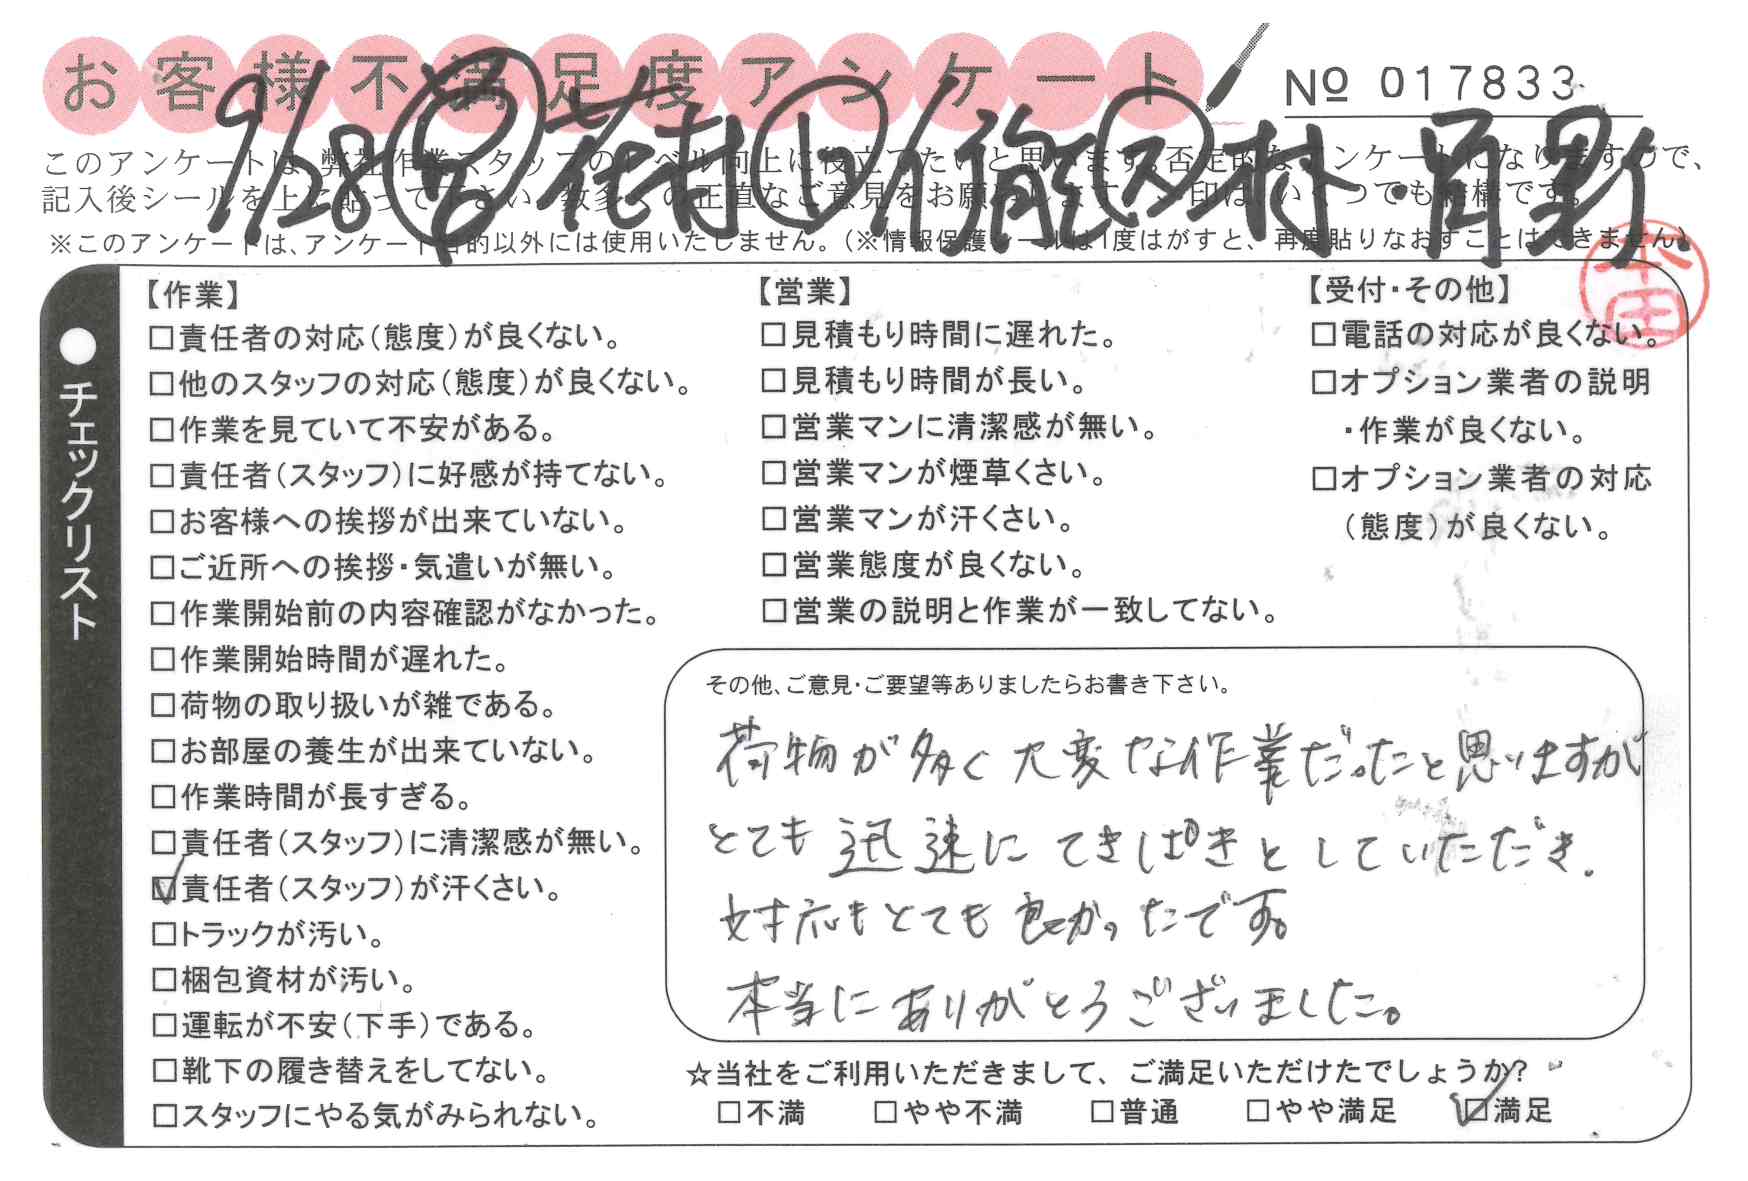 お客様不満足度アンケート
№ 017833
9/28
このアンケートは、弊社作業スタッフのレベル向上に役立てたいと思います。否定的なアンケートになりますので、
記入後シールを上に貼って下さい。数多くの正直なご意見をお願いします。✓印は、いくつでも結構です。
※このアンケートは、アンケート目的以外には使用いたしません。(※情報保護シールは1度はがすと、再度貼りなおすことはできません)
●チェックリスト
【作業】
□責任者の対応(態度)が良くない。
□他のスタッフの対応(態度)が良くない。
□作業を見ていて不安がある。
□責任者(スタッフ)に好感が持てない。
□お客様への挨拶が出来ていない。
□ご近所への挨拶・気遣いが無い。
□作業開始前の内容確認がなかった。
□作業開始時間が遅れた。
□荷物の取り扱いが雑である。
□お部屋の養生が出来ていない。
□作業時間が長すぎる。
□責任者(スタッフ)に清潔感が無い。
☑責任者(スタッフ)が汗くさい。
□トラックが汚い。
□梱包資材が汚い。
□運転が不安(下手)である。
□靴下の履き替えをしてない。
□スタッフにやる気がみられない。
【営業】
□見積もり時間に遅れた。
□見積もり時間が長い。
□営業マンに清潔感が無い。
□営業マンが煙草くさい。
□営業マンが汗くさい。
□営業態度が良くない。
□営業の説明と作業が一致してない。
【受付・その他】
□電話の対応が良くない。
□オプション業者の説明
・作業が良くない。
□オプション業者の対応
(態度)が良くない。
その他、ご意見・ご要望等ありましたらお書き下さい。
荷物が多く大変な作業だったと思いますが
とても迅速にてきぱきとしていただき、
対応もとても良かったです。
本当にありがとうございました。
☆当社をご利用いただきまして、ご満足いただけたでしょうか?
□不満 □やや不満 □普通 □やや満足 ☑満足